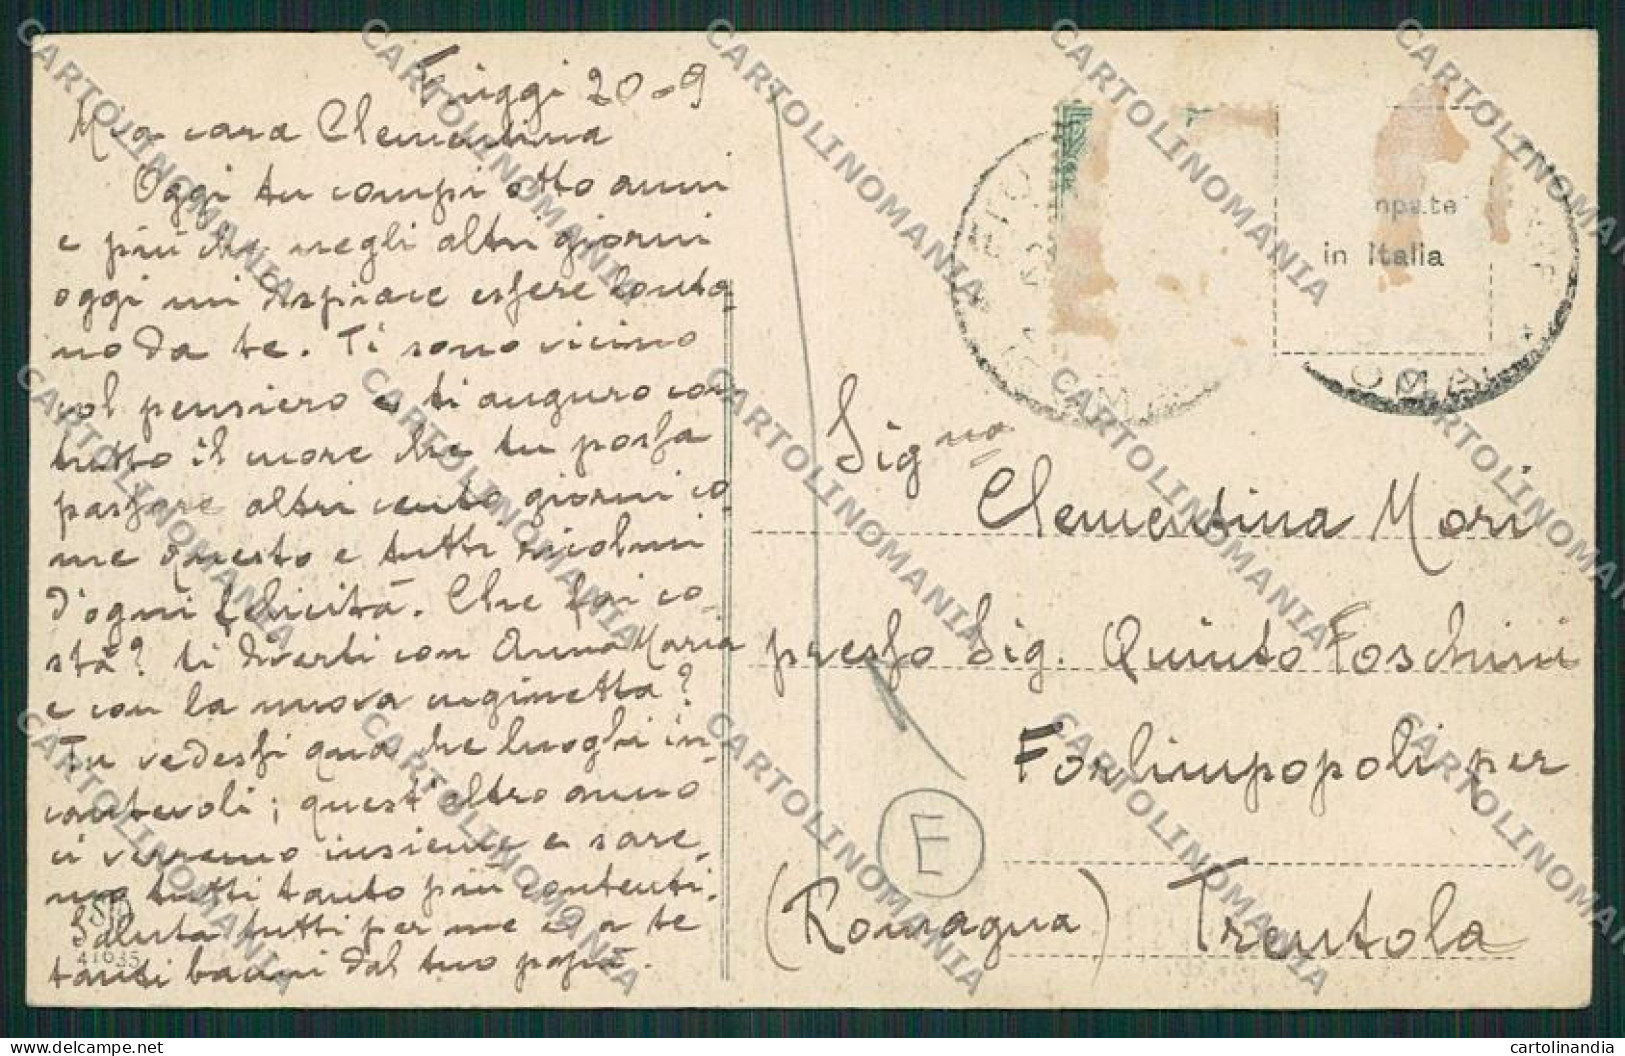 20-9
Mia cara Clementina
Oggi tu compi otto anni
e più che negli altri giorni
oggi mi dispiace essere lonta-
no da te. Ti sono vicino
col pensiero e ti auguro con
tutto il cuore che tu possa
passare altri cento giorni co-
me questo e tutti ricolmi
d'ogni felicità. Che fai co-
stà? ti diverti con Anna Maria
e con la nuova cuginetta?
Tu vedessi qua che luoghi in-
cantevoli; quest'altro anno
ci verremo insieme e sare-
mo tutti tanto più contenti.
Saluta tutti per me e a te
tanti bacini dal tuo papà.
41635
in Italia
Sig.na
Clementina Mori
presso Sig. Quinto Foschini
Forlimpopoli per
(Romagna) Trentola
E
CARTOLINOMANIA
delcampe.net
cartolinandia